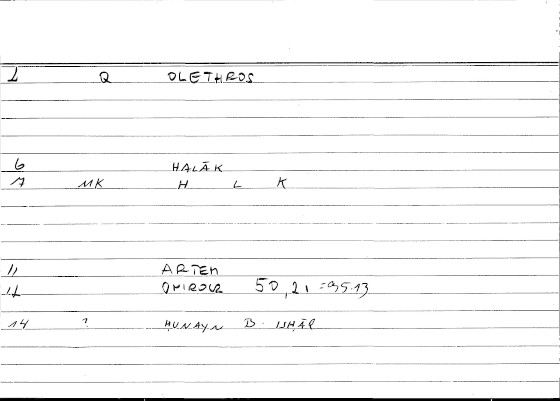 1 Q OLETHROS
6 HALĀK
7 MK H L K
11 ARTEM
12 50,21 = 95.13
14 ? HUNAYN B. ISHĀQ